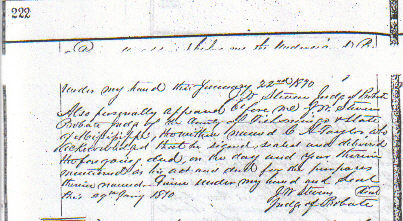 222
Under my hand this January 22nd 1870
J. W. Stevens Judge of Probate
Also personally appeared before me J. W. Stevens
Probate Judge of the County of Tishomingo & State
of Mississippi, the within named C. A. Taylor who
acknowledged that he signed sealed and delivered
the foregoing deed, on the day and year therein
mentioned as his act and deed for the purposes
therein named. Given under my hand and Seal
this Jany 1870
J. W. Stevens Seal
Judge of Probate